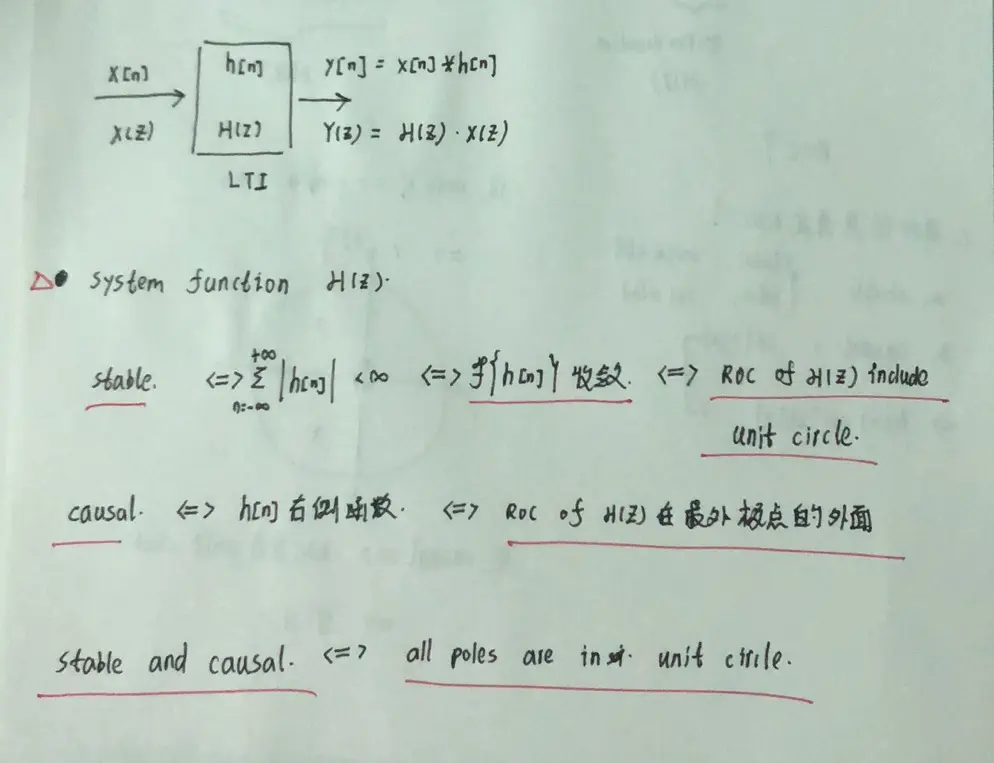 x[n] h[n] y[n] = x[n] * h[n]
X(z) H(z) Y(z) = H(z) · X(z)
LTI
△● system function H(z).
stable. <=> +∞ Σ n=-∞ |h[n]| < ∞ <=> ℱ{h[n]} 收敛. <=> ROC of H(z) include
unit circle.
causal. <=> h[n] 右侧函数. <=> ROC of H(z) 在最外极点的外面
stable and causal. <=> all poles are in unit circle.